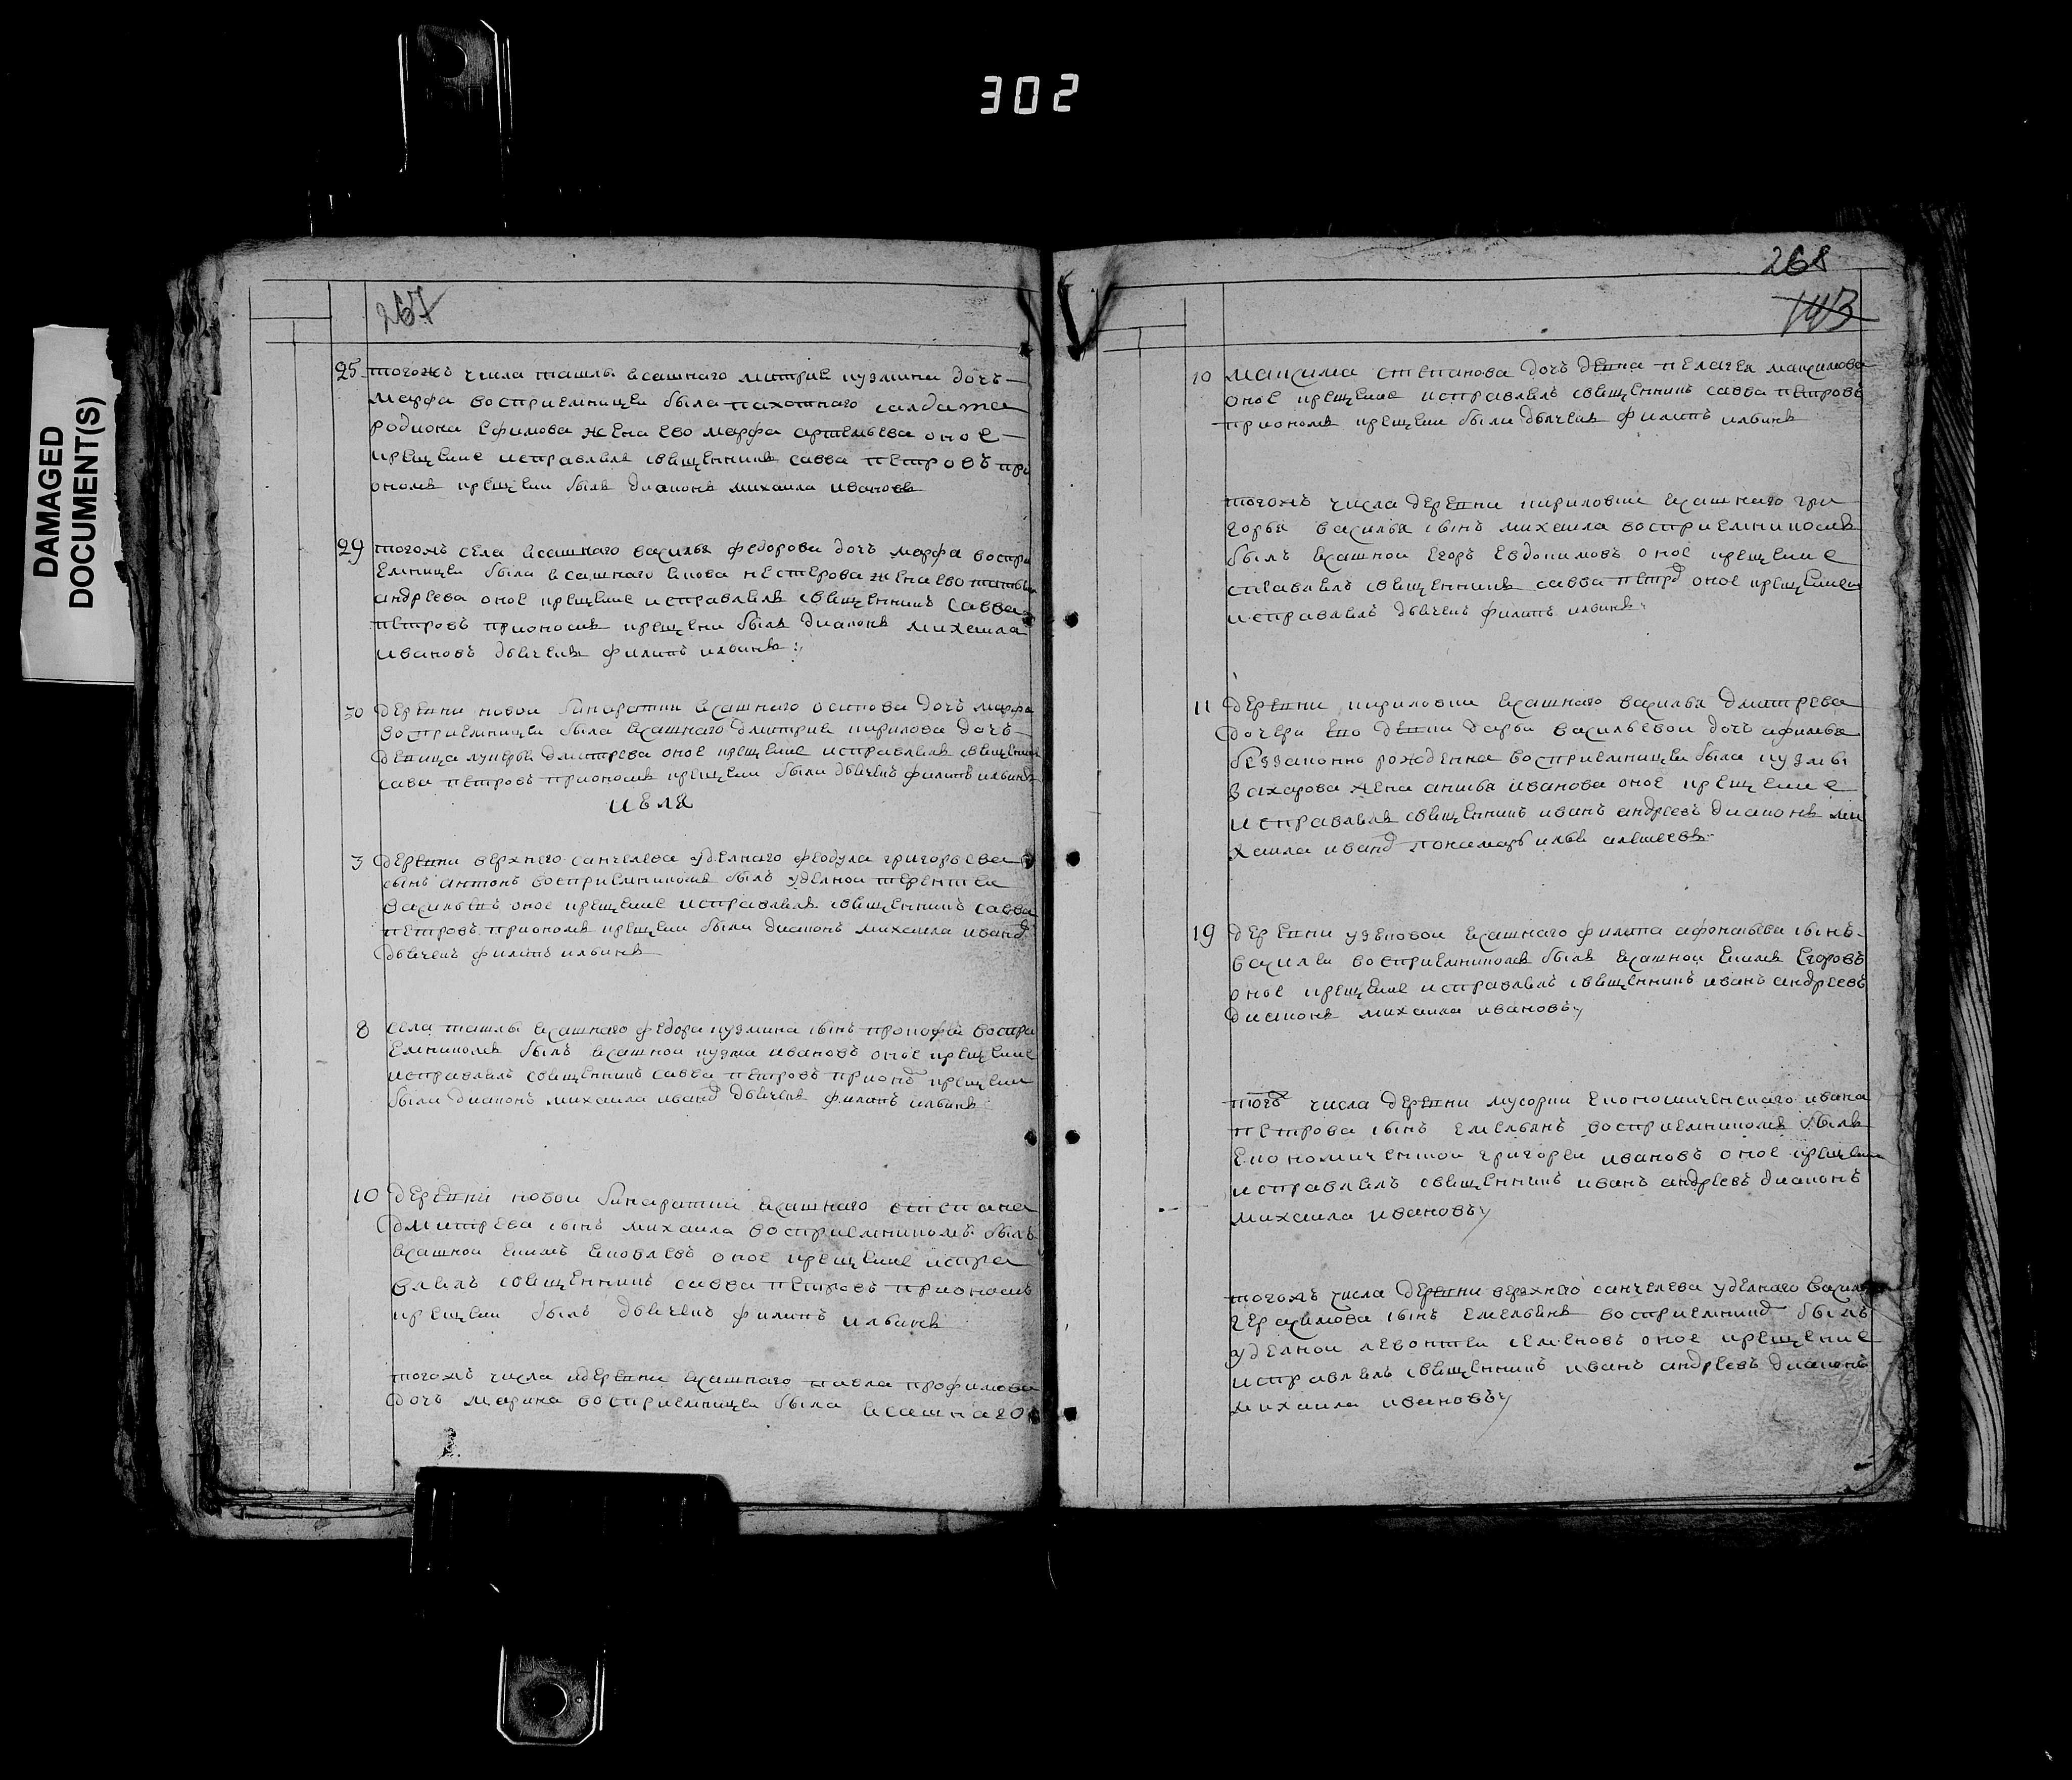 302
DAMAGED
DOCUMENT(S)
267
25 тогожъ числа ташлы ясашнаго митрие кузмина дочь
марфа восприемницеи была пахотнаго салдата
родиона ефимова жена ево марфа артемьева оное
крещение исправлялъ священникъ савва петровъ при
ономъ крещени былъ диаконъ михаила ивановъ
29 тогожъ села ясашнаго василья федорова дочь марфа воспри
емницеи была ясашнаго якова нестерова жена ево
андреева оное крещение исправлялъ священникъ савва
петровъ приономъ крещени былъ диаконъ михаила
ивановъ дьячекъ филипъ ильинъ
30 деревни новои ясашнаго осипова дочь марфа
восприемницеи была ясашнаго дмитрие кирилова дочь
девица лукерья дмитрева оное крещение исправлялъ священикъ
сава петровъ приономъ крещени были дьячекъ филипъ ильинъ
июля
3 деревни верхнего санчелева удѣлнаго федула григорьева
сынъ антонъ восприемникомъ былъ удѣлнои терентеи
васильевъ оное крещение исправлялъ священникъ савва
петровъ приономъ крещени были диаконъ михаила иванд
дьячекъ филипъ ильинъ
8 села ташлы ясашнаго федора кузмина сынъ прокофеи воспри
емникомъ былъ ясашнои кузма ивановъ оное крещение
исправлялъ священникъ савва петровъ прионд крещени
были диаконъ михаила иванд дьячекъ филипъ ильинъ
10 деревни новои ясашнаго степана
дмитрева сынъ михаила восприемникомъ былъ
ясашнои екимъ яковлевъ оное крещение испра
влялъ священникъ савва петровъ приономъ
крещени былъ дьячекъ филипъ ильинъ
тогожъ числа деревни ясашнаго павла трофимова
дочь марина восприемницеи была ясашнаго
268
10 максима степанова дочь девка пелагея максимова
оное крещение исправлялъ священникъ савва петровъ
приономъ крещени были дьячекъ филипъ ильинъ
тогожъ числа деревни кириловки ясашнаго гри
горья василья сынъ михаила восприемникомъ
былъ ясашнои егоръ евдокимовъ оное крещение
справлялъ священникъ савва петрд оное крещение
исправлялъ дьячекъ филипъ ильинъ
11 деревни кириловки ясашнаго василья дмитрева
дочери ево девки дарьи васильевои дочь афимья
беззаконно рожденна восприемницеи была кузмы
захарова жена анисья иванова оное крещение
исправлялъ священникъ иванъ андреевъ диаконъ ми
хаила иванд понамарь илья алексеевъ
19 деревни узюковои ясашнаго филипа афонасьева сынъ
василеи восприемникомъ былъ ясашнои екимъ егоровъ
оное крещение исправлялъ священникъ иванъ андреевъ
диаконъ михаила ивановъ
тогд числа деревни мусорки економическаго ивана
петрова сынъ емельянъ восприемникомъ былъ
економическои григореи ивановъ оное крещени
исправлялъ священникъ иванъ андреевъ диаконъ
михаила ивановъ
тогожъ числа деревни верхнего санчелева удѣлнаго василья
герасимова сынъ емельянъ восприемникд былъ
удѣлнои левонтеи семеновъ оное крещение
исправлялъ священникъ иванъ андреевъ диаконъ
михаила ивановъ